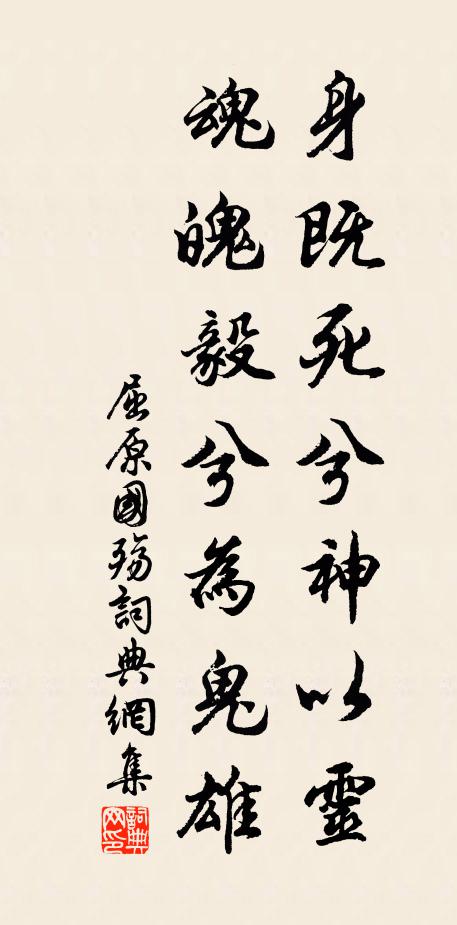 身既死兮神以靈
魂魄毅兮為鬼雄
屈原國殤詞典網集
詞典網印